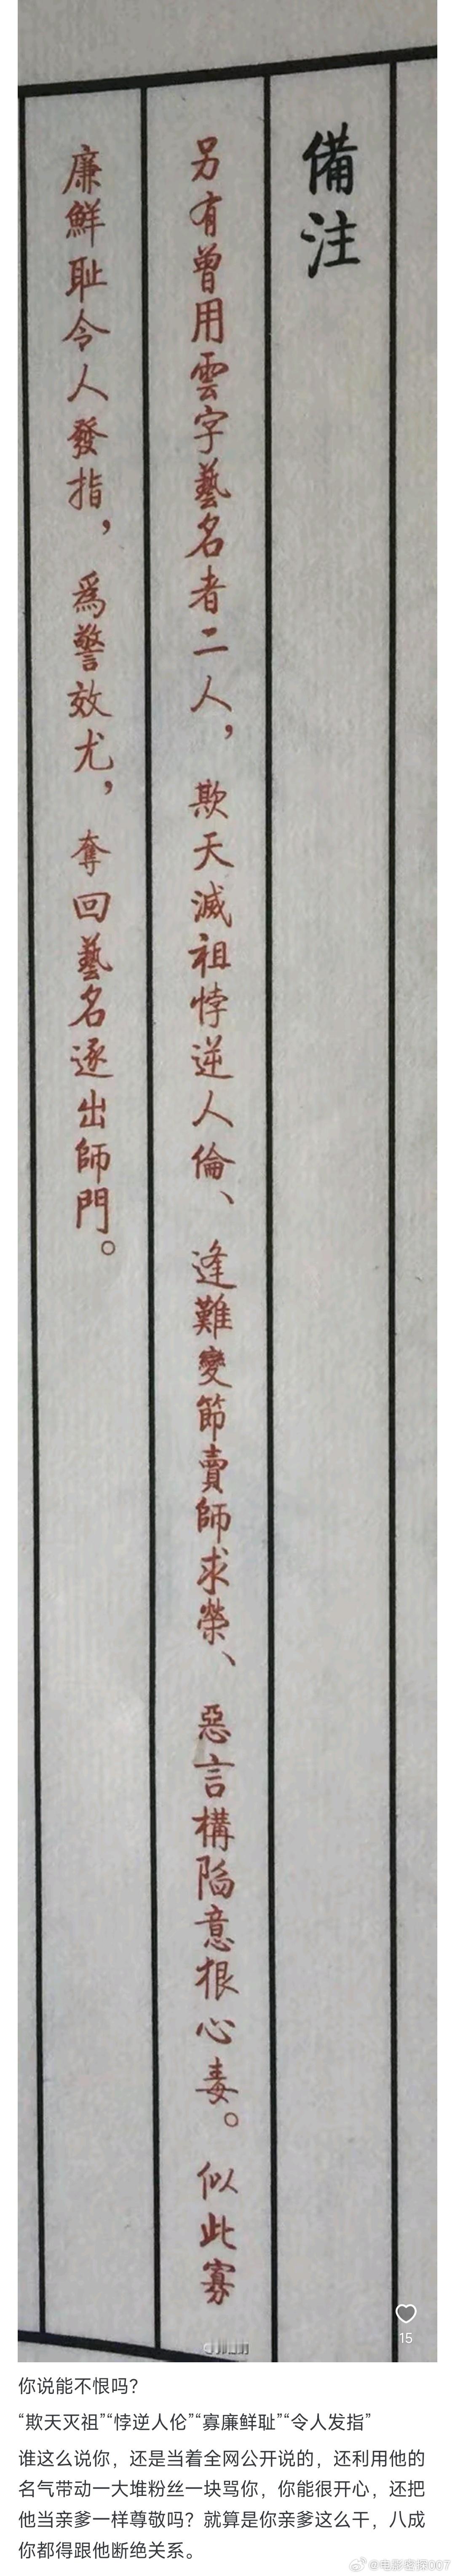 備注
另有曾用雲字藝名者二人，欺天滅祖悖逆人倫、逢難變節賣師求榮、惡言構陷意狠心毒。似此寡
廉鮮耻令人發指，爲警效尤，奪回藝名逐出師門。
15
你说能不恨吗？
“欺天灭祖”“悖逆人伦”“寡廉鲜耻”“令人发指”
谁这么说你，还是当着全网公开说的，还利用他的
名气带动一大堆粉丝一块骂你，你能很开心，还把
他当亲爹一样尊敬吗？就算是你亲爹这么干，八成
你都得跟他断绝关系。